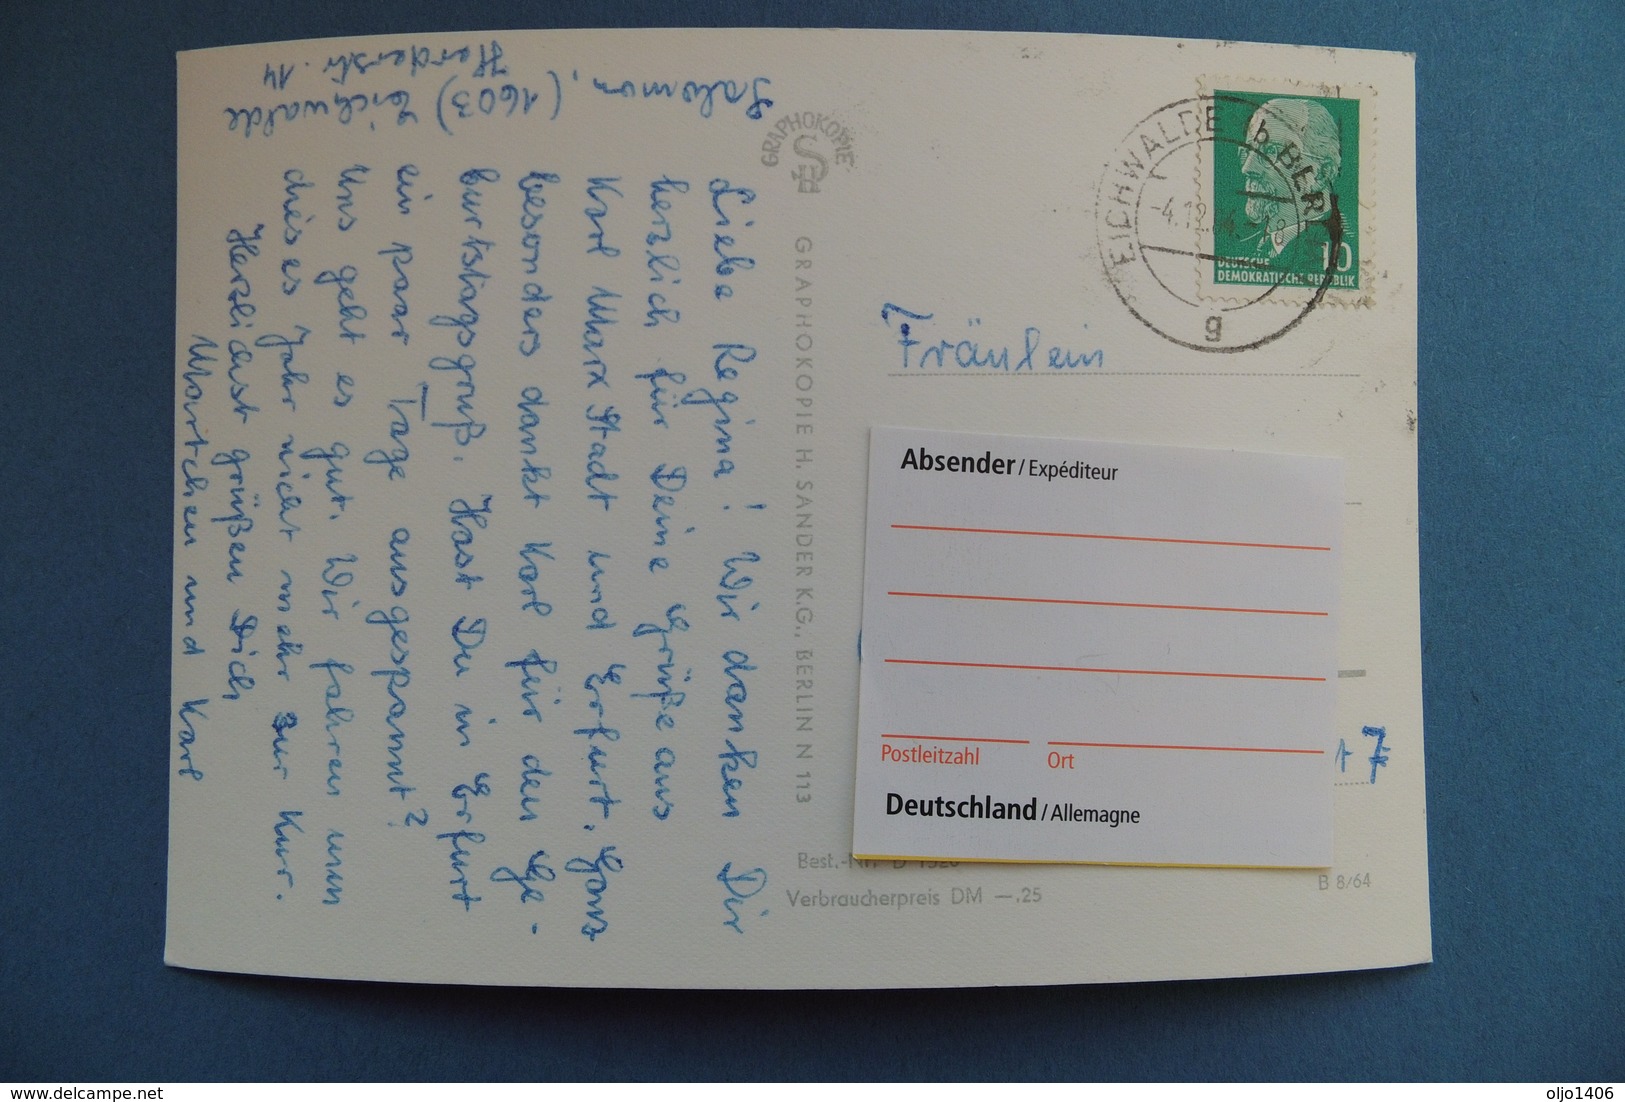 Salomon, (1603) Eichwalde
Herderstr. 14
Liebe Regina! Wir danken Dir
herzlich für Deine Grüße aus
Karl Marx Stadt und Erfurt. Ganz
besonders dankt Karl für den Ge-
burtstagsgruß. Hast Du in Erfurt
ein paar Tage ausgespannt?
Uns geht es gut. Wir fahren nun
dies es Jahr nicht mehr zur Kur.
Herzlichst grüßen Dich
Martchen und Karl
GRAPHOKOPIE
GRAPHOKOPIE H. SANDER K.G., BERLIN N 113
EICHWALDE (b BERLIN)
g
10
DEUTSCHE
DEMOKRATISCHE REPUBLIK
Fräulein
Absender / Expéditeur
Postleitzahl Ort
Deutschland / Allemagne
7
Best.-Nr.
Verbraucherpreis DM —.25
B 8/64
delcampe.net
oljo1406